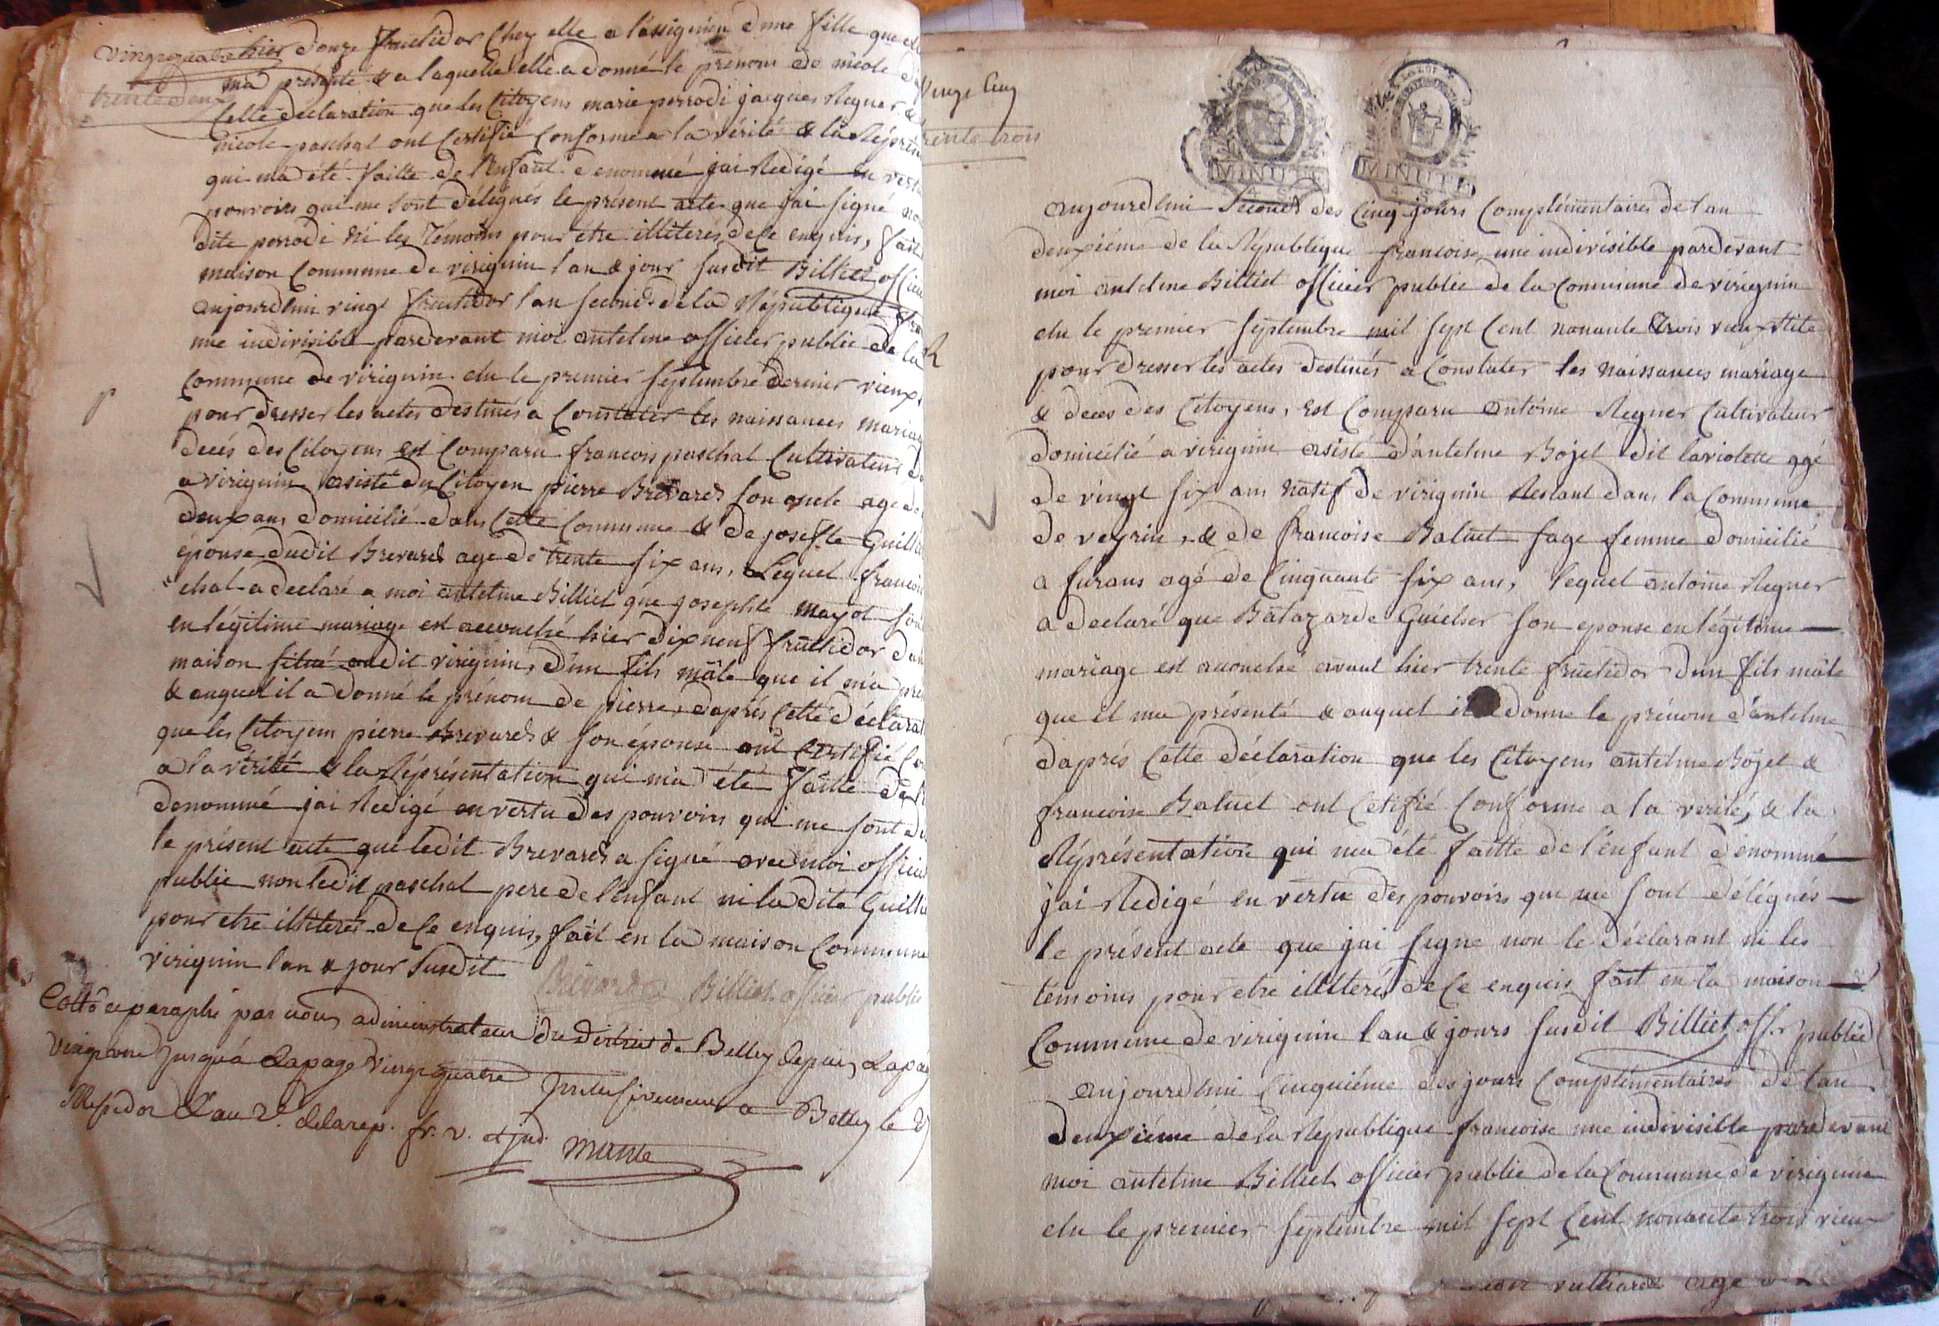 vingt quatre
trente deux
hier douze fructidor chez elle a lassignieu d'une fille que
ma présenté & a laquelle elle a donné le prénom de nicole
Cette declaration que les Citoyens marie perrodi jacques Regner &
nicole paschal ont Certifié Conforme a la vérité & la Répré
qui ma été faitte de l'enfant denommé jai Redigé en vertu
pouvoirs qui me sont délégués le présent acte que jai signé non
dite perrodi ni les témoins pour etre illiterés de ce enquis, fait
maison Commune de virignin l'an & jour susdit Billiet officier
aujourdhui vingt fructidor l'an second de la République fra
une indivisible pardevant moi antelme officier public de la
Commune de virignin elu le premier septembre dernier vieux
pour dresser les actes destinés a Constater les naissances mariag
decés des Citoyens est Comparu francois paschal Cultivateur
a virignin asisté du Citoyen pierre Brevard son oncle agé de
deux ans domicilié dans Cette Commune & de josephte Guillie
épouse dudit Brevard agé de trente six ans, Lequel francois
chal a declaré a moi antelme Billiet que josephte mayot son
en légitime mariage est accouché hier dix neuf fructidor dans
maison situé audit virignin, d'un fils mâle que il m'a pré
& auquel il a donné le prénom de pierre, d'aprés Cette déclarat
que les Citoyens pierre Brevard & son épouse ont Certifié Con
a la vérité & la Réprésentation qui m'a été faitte de
denommé jai Redigé en vertu des pouvoirs qui me sont dé
le présent acte que ledit Brevard a signé avec moi officier
public non ledit paschal pere de l'enfant ni la dite Guillie
pour etre illiterés de ce enquis, fait en la maison Commune
virignin l'an & jour susdit
Brévard Billiet officier public
Cotté et paraphé par nous administrateur du District de Belley depuis la page
jusqu'a la page vingt quatre inclusivement a Belley le
Messidor L'an 2.e de la rep. fr. v. et ind.
vingt Cinq
trente trois
MINUTE MINUTE
aujourdhui second des Cinq jours Complémentaires de l'an
deuxiéme de la République francoise une indivisible pardevant
moi antelme Billiet officier public de la Commune de virignin
elu le premier septembre mil sept Cent nonante trois vieux stile
pour dresser les actes destinés a Constater les naissances mariage
& deces des Citoyens, est Comparu antoine Regner Cultivateur
domicilié a virignin asisté d'antelme Bojet dit laviolette agé
de vingt six ans natif de virignin Restant dans la Commune
de veyrin, & de francoise Baluet sage femme domicilié
a furans agé de Cinquante six ans, lequel antoine Regner
a declaré que Batazarde Guicher son eponse en légitime
mariage est accouché avant hier trente fructidor d'un fils mâle
que il ma présenté & auquel il a donné le prénom d'antelme
d'aprés Cette déclaration que les Citoyens antelme Bojet &
francoise Baluet ont Cetifié Conforme a la verité, & la
Réprésentation qui ma été faitte de l'enfant dénommé
j'ai Redigé en vertu des pouvoirs qui me sont délégués
le présent acte que jai signé non le déclarant ni les
témoins pour etre illiterés de ce enquis fait en la maison
Commune de virignin l'an & jours susdit Billiet offr public
aujourdhui Cinquiéme des jours Complémentaires de l'an
deuxiéme de la République francoise une indivisible pardevant
moi antelme Billiet officier public de la Commune de virignin
elu le premier septembre mil sept Cent nonante trois vieux
vulliard agé